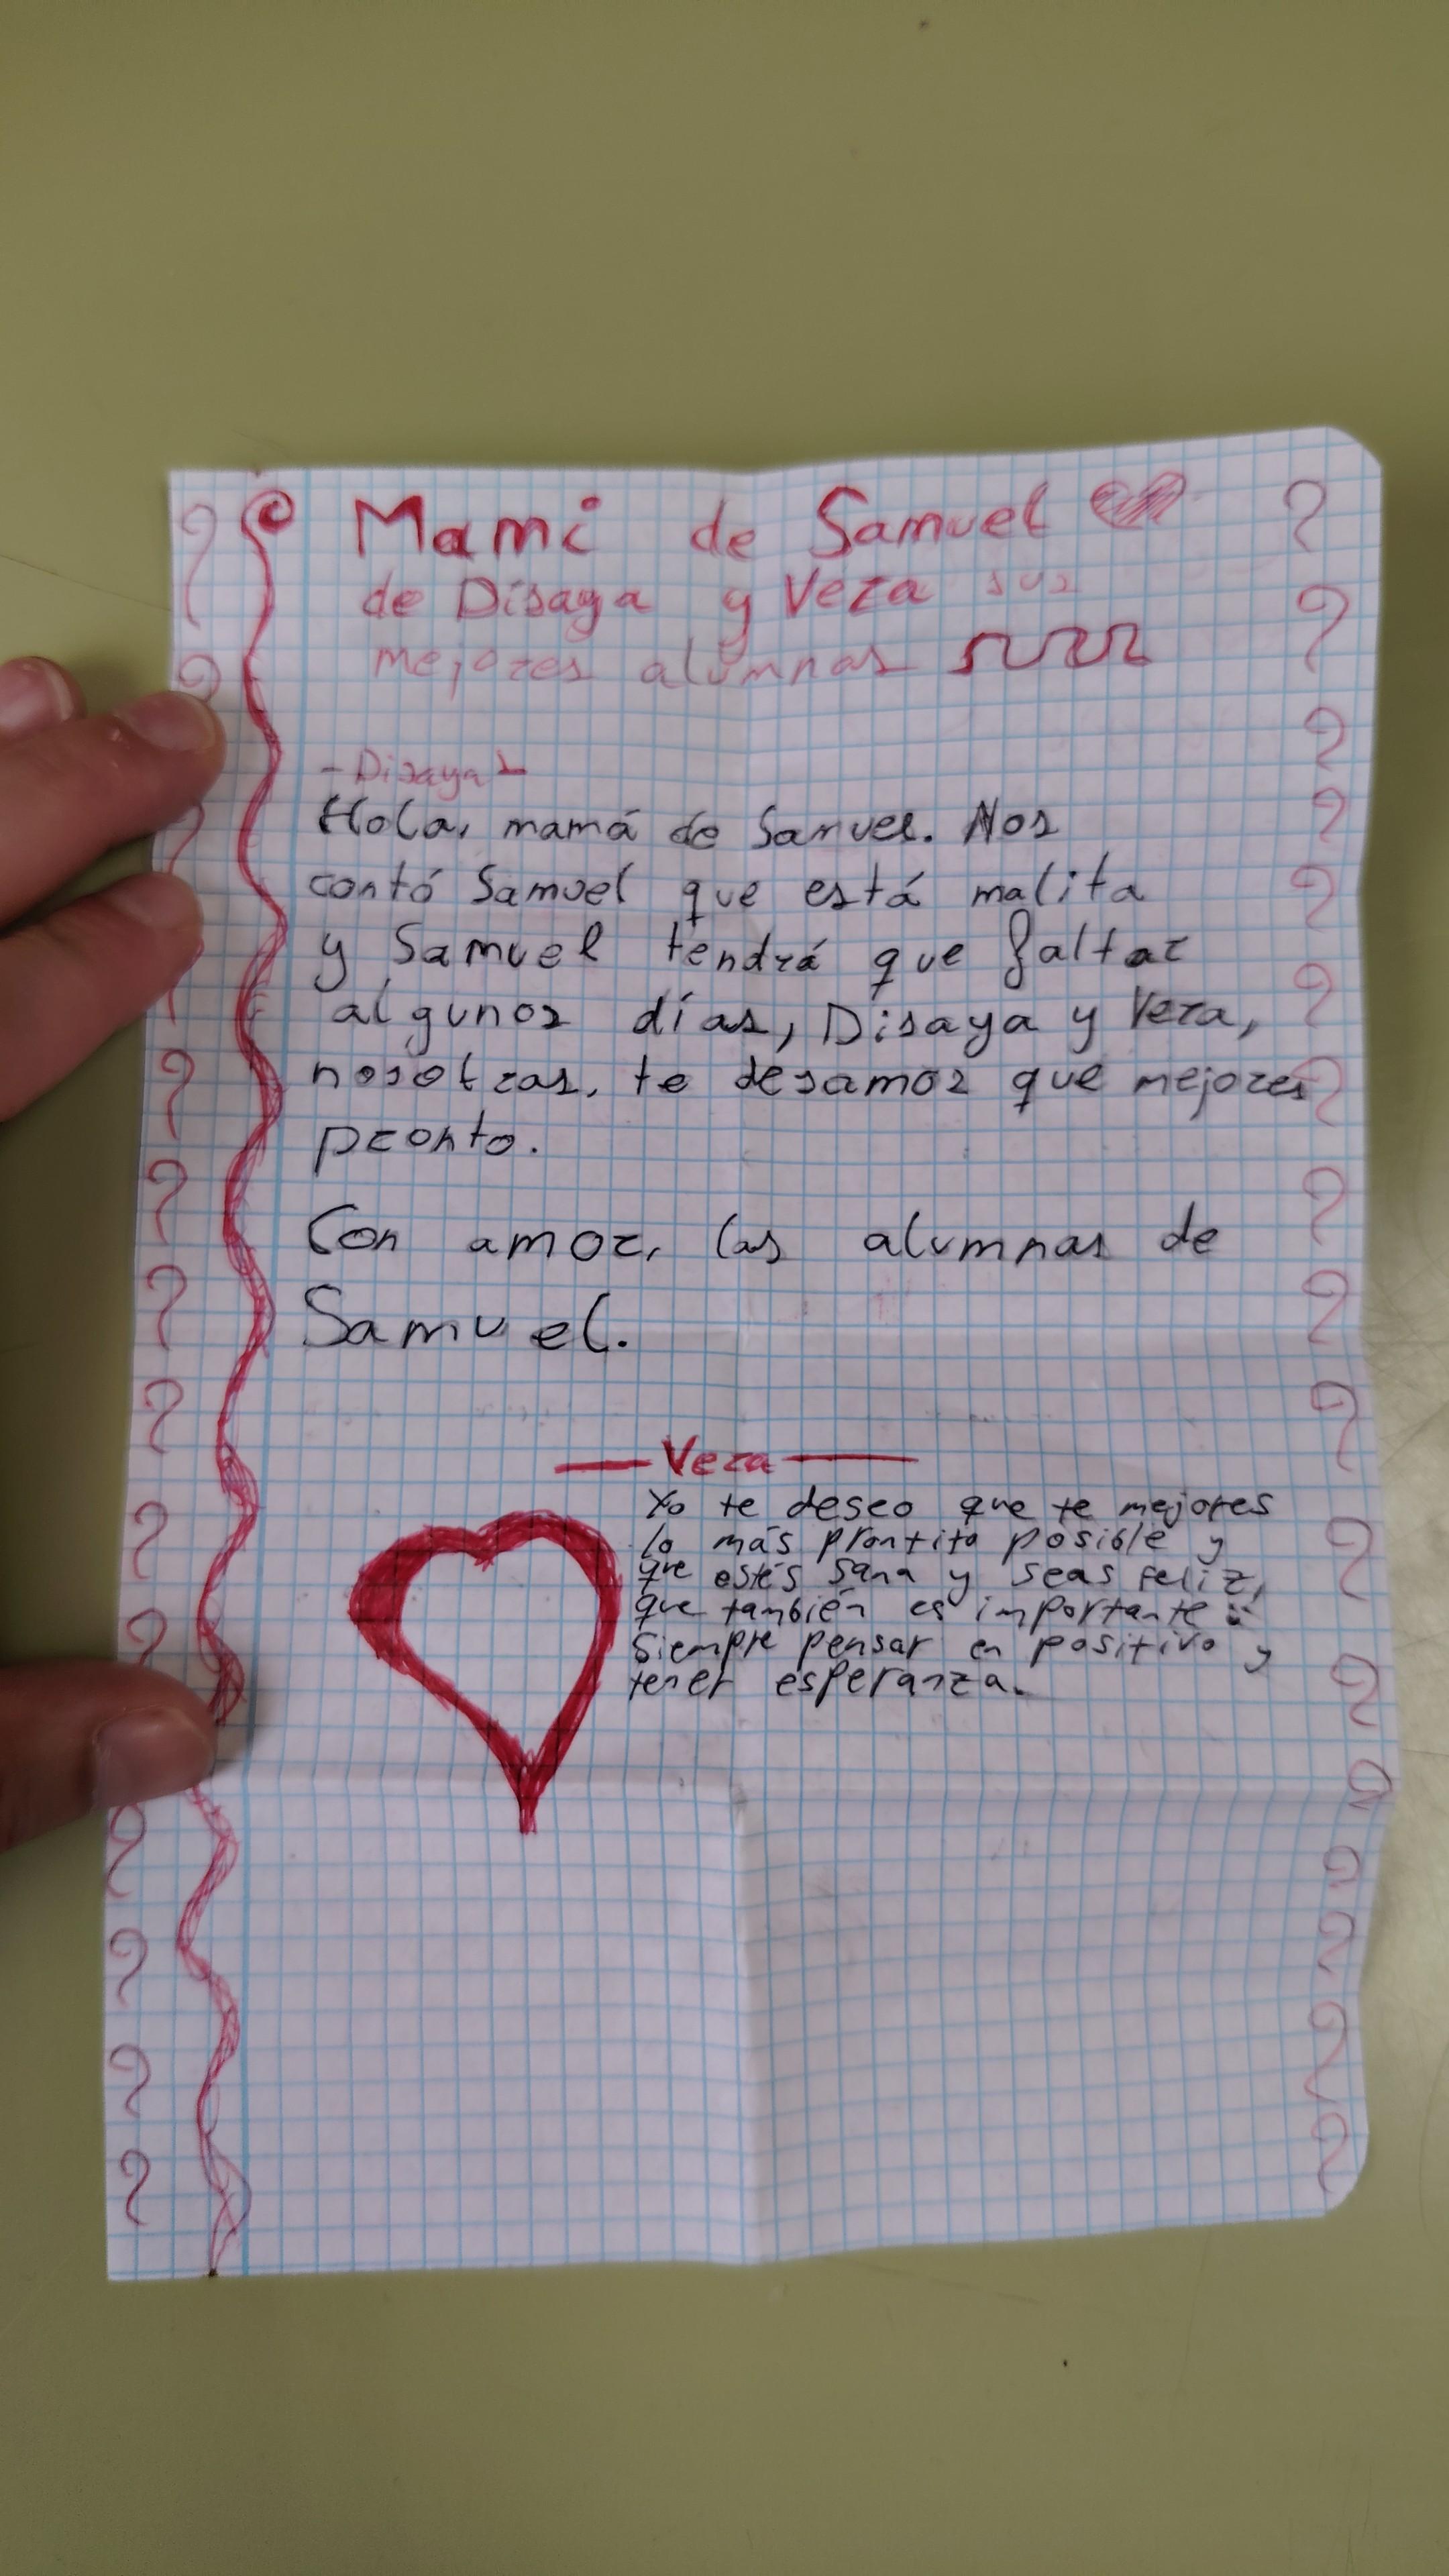 Mami de Samuel
de Disaya y Vera sus
mejores alumnas
-Disaya-
Hola, mamá de Samuel. Nos
contó Samuel que está malita
y Samuel tendrá que faltar
algunos días, Disaya y Vera,
nosotras, te desamos que mejores
pronto.
Con amor, las alumnas de
Samuel.
— Vera —
Yo te deseo que te mejores
lo más prontito posible y
que estés sana y seas feliz,
que también es importante :)
Siempre pensar en positivo y
tener esperanza.